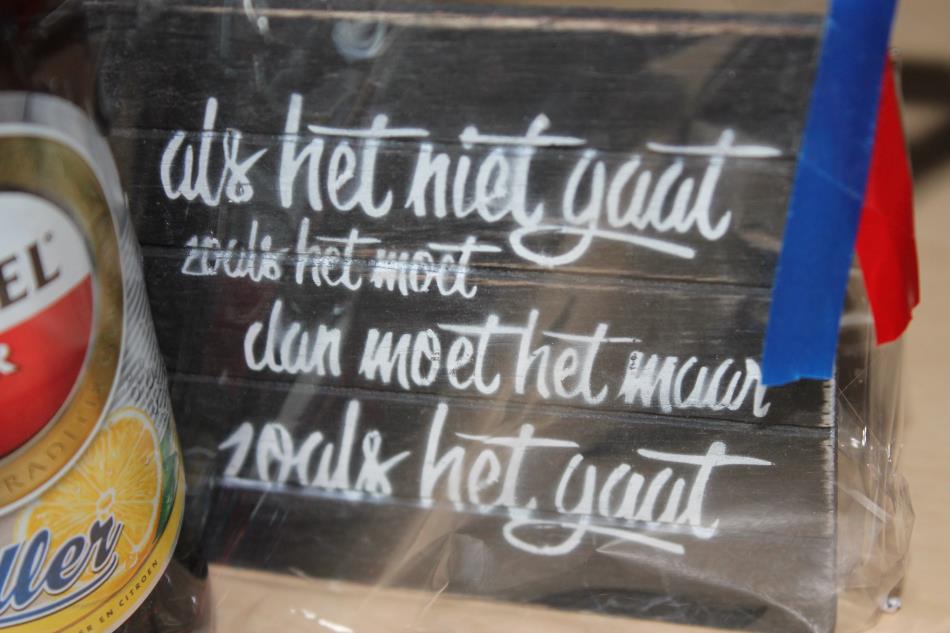 als het niet gaat
zoals het moet
dan moet het maar
zoals het gaat
EL
R
RADI
ller
ER EN CITROEN